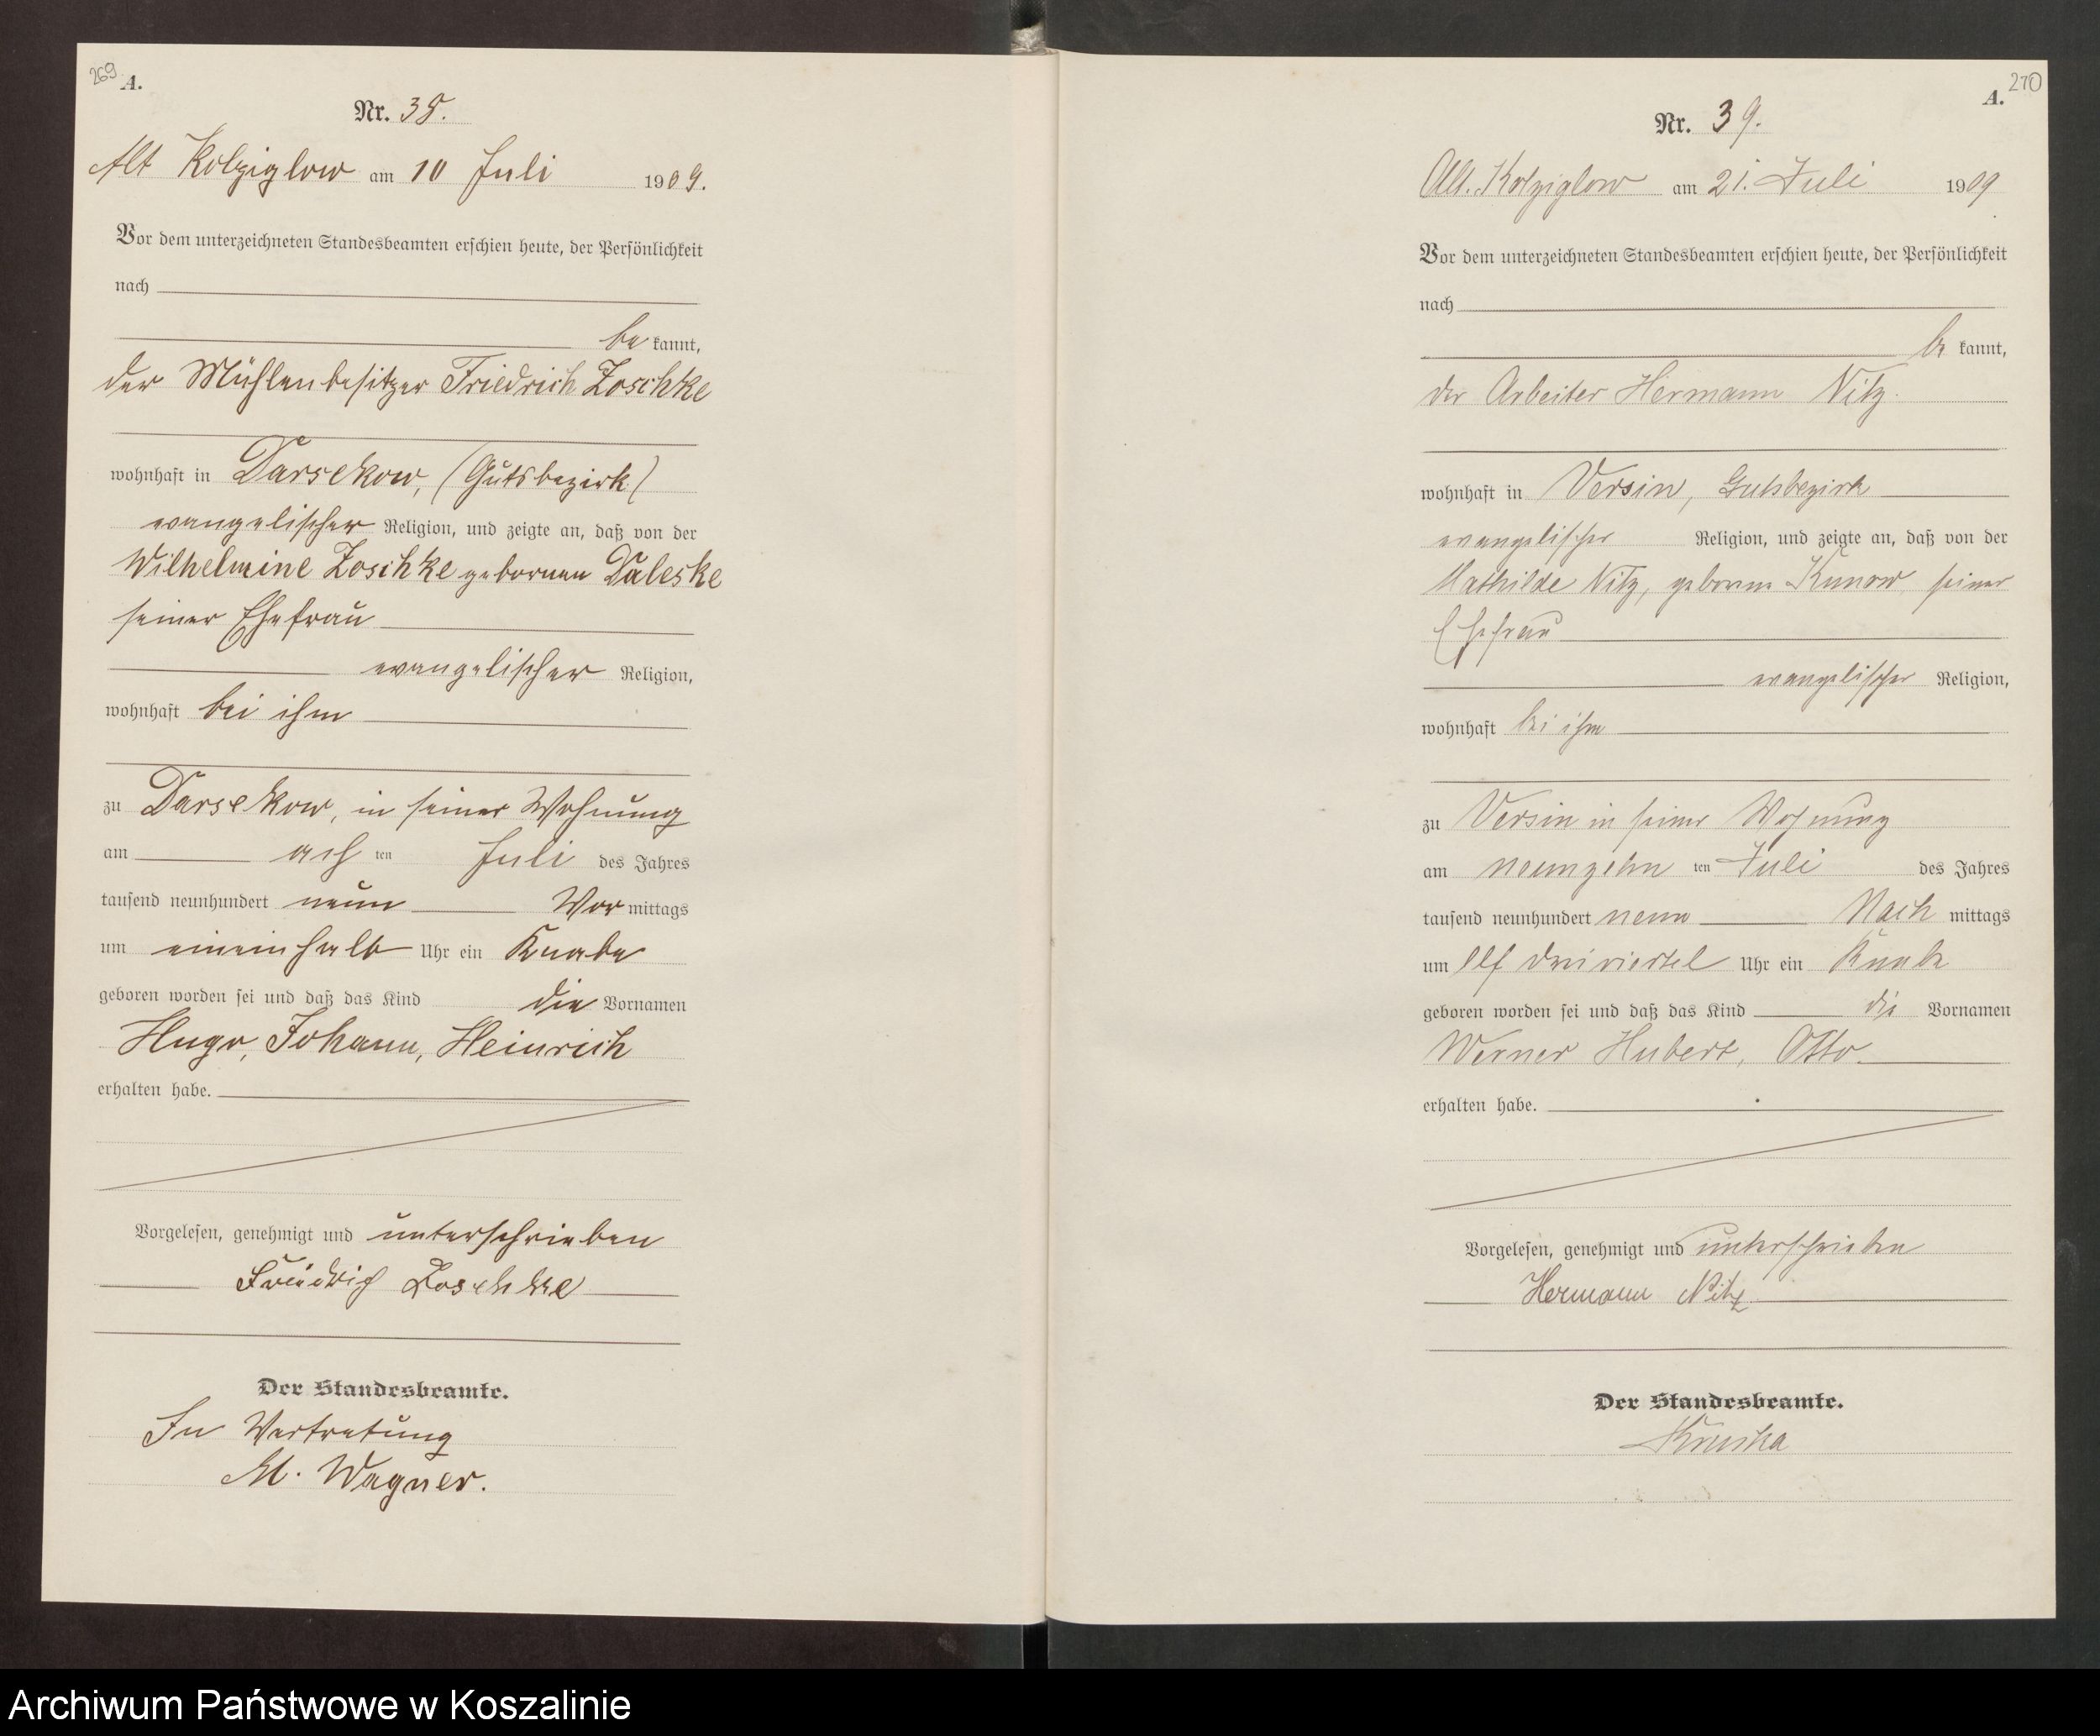 269
A.
Nr. 38.
Alt Kolziglow am 10 Juli 1909.
Vor dem unterzeichneten Standesbeamten erschien heute, der Persönlichkeit
nach
be kannt,
der Mühlenbesitzer Friedrich Zoschke
wohnhaft in Darsekow, (Gutsbezirk)
evangelischer Religion, und zeigte an, daß von der
Wilhelmine Zoschke gebornen Daleske
seiner Ehefrau
evangelischer Religion,
wohnhaft bei ihm
zu Darsekow, in seiner Wohnung
am ach ten Juli des Jahres
tausend neunhundert neun Vor mittags
um eineinhalb Uhr ein Knabe
geboren worden sei und daß das Kind die Vornamen
Hugo, Johann, Heinrich
erhalten habe.
Vorgelesen, genehmigt und unterschrieben
Friedrich Zoschke
Der Standesbeamte.
In Vertretung
M. Wagner.
270
A.
Nr. 39.
Alt. Kolziglow am 21. Juli 1909
Vor dem unterzeichneten Standesbeamten erschien heute, der Persönlichkeit
nach
be kannt,
der Arbeiter Hermann Nitz.
wohnhaft in Versin, Gutsbezirk
evangelischer Religion, und zeigte an, daß von der
Mathilde Nitz, geborne Kunow seiner
Ehefrau
evangelischer Religion,
wohnhaft bei ihm
zu Versin in seiner Wohnung
am neunzehn ten Juli des Jahres
tausend neunhundert neun Nach mittags
um elf dreiviertel Uhr ein Knabe
geboren worden sei und daß das Kind die Vornamen
Werner Hubert, Otto.
erhalten habe.
Vorgelesen, genehmigt und unterschrieben
Hermann Nitz
Der Standesbeamte.
Archiwum Państwowe w Koszalinie